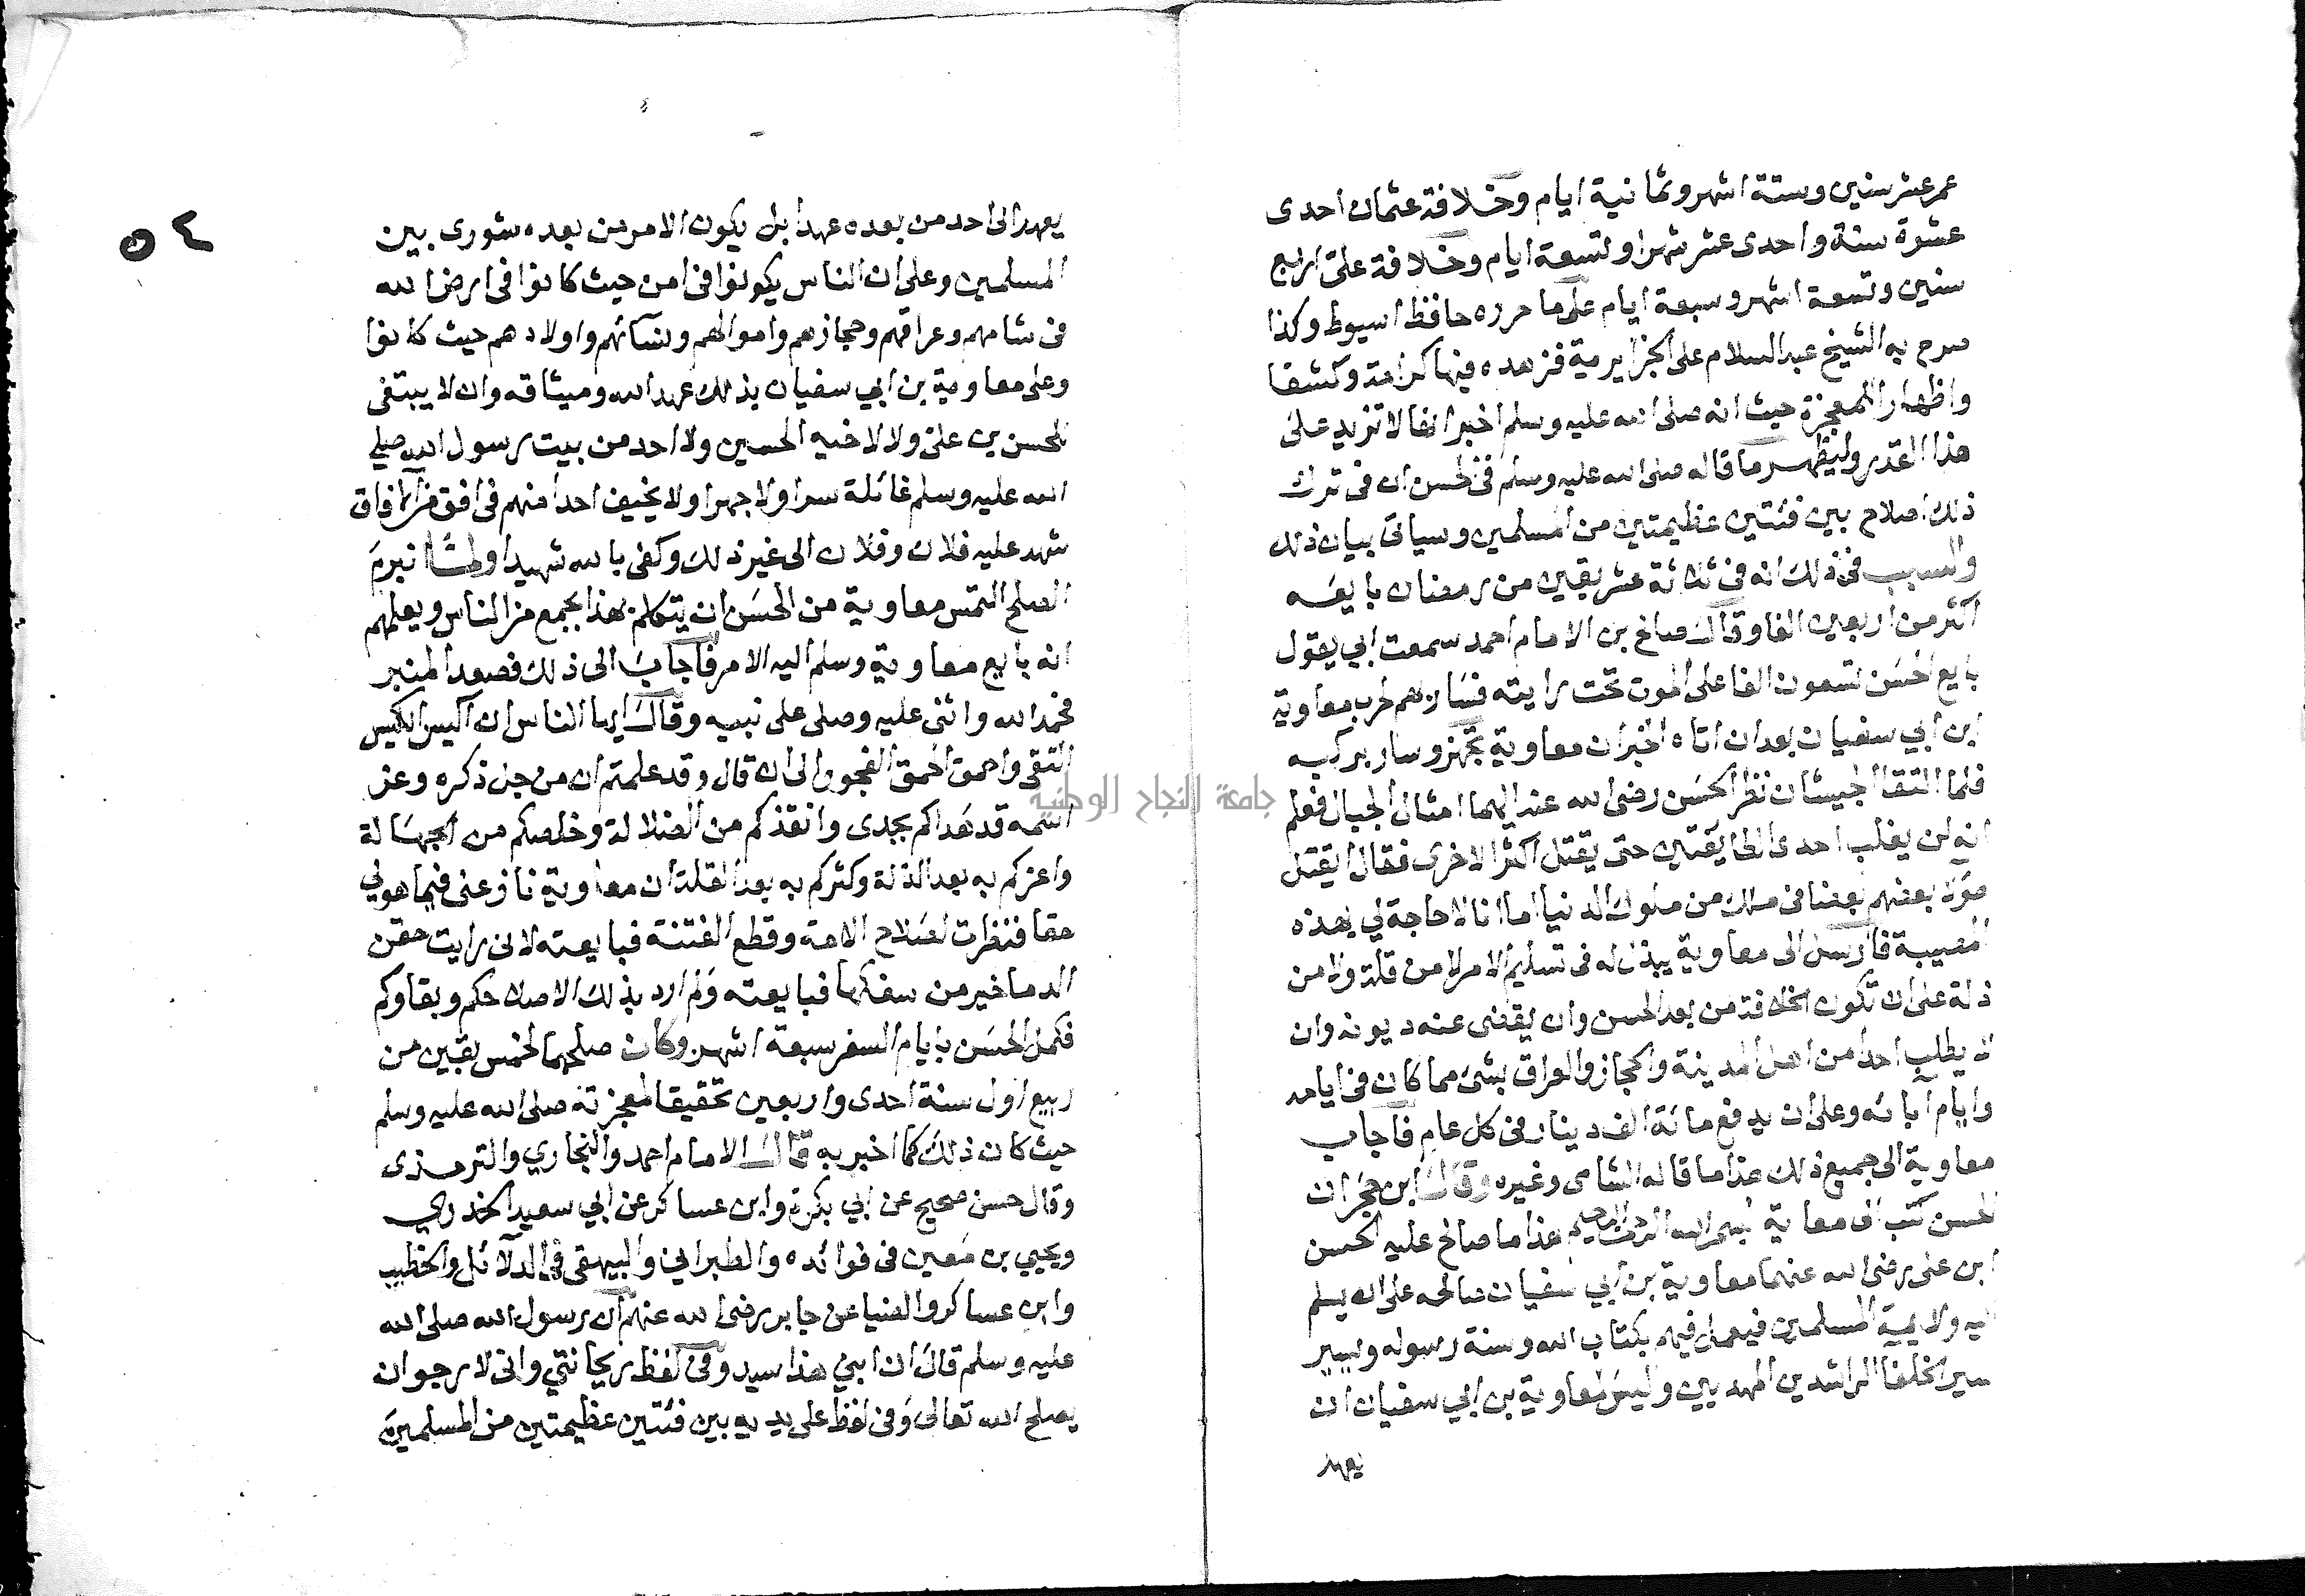 عمر عشر سنين وستة اشهر وثمانية ايام وخلافة عثمان احدى
عشرة سنة واحدى عشر شهرا وتسعة ايام وخلافة على اربع
سنين وتسعة اشهر وسبعة ايام على ما حرره حافظ اسيوط وكذا
صرح به الشيخ عبد السلام على الجزايرية فزهده فيها كرامة وكشفا
واظهارا لمعجزة حيث انه صلى الله عليه وسلم اخبر انها لا تزيد على
هذا القدر وليظهر ما قاله صلى الله عليه وسلم في الحسن ان في ترك
ذلك اصلاح بين فئتين عظيمتين من المسلمين وسياتى بيان ذلك
والسبب في ذلك انه في ثلاثة عشر بقين من رمضان بايعه
اكثر من اربعين الفا وقال صالح بن الامام احمد سمعت ابي يقول
بايع الحسن تسعون الفا على الموت تحت رايته فسار لهم لحرب معاوية
ابن ابي سفيان بعد ان اتاه الخبر ان معاوية تجهز وسار بركبه
فلما التقا الجيشان نظر الحسن رضى الله عنه اليهما امثال الجبال فعلم
انه لن يغلب احدى الطايفتين حتى يقتل اكثر الاخرى فقال ايقتل
هؤلا بعضهم بعضا في ملك من ملوك الدنيا اما انا لا حاجة لي بهذه
المصيبة فارسل الى معاوية يبذل له في تسليم الامر لا من قلة ولا من
ذلة على ان تكون الخلافة من بعد للحسن وان يقضى عنه ديونه وان
لا يطلب احدا من اهل المدينة والحجاز والعراق بشئ مما كان في ايامه
وايام آبائه وعلى ان يدفع مائة الف دينار في كل عام فاجاب
معاوية الى جميع ذلك هذا ما قاله الشامى وغيره وقال ابن حجر ان
الحسن كتب الى معاية بسم الله الرحمن الرحيم هذا ما صالح عليه الحسن
ابن على رضى الله عنهما معاوية بن ابي سفيان صالحه على ان يسلم
اليه ولاية المسلمين فيعمل فيهم بكتاب الله وسنة رسوله وسير
سير الخلفا الراشدين المهديين وليس لمعاوية بن ابي سفيان ان
يعهد
٥٤
يعهد الى احد من بعده عهدا بل يكون الامر من بعده شورى بين
المسلمين وعلى ان الناس يكونوا في امن حيث كانوا في ارض الله
في شامهم وعراقهم وحجازهم واموالهم ونسائهم واولادهم حيث كانوا
وعلى معاوية بن ابي سفيان بذلك عهد الله وميثاقه وان لا يبتغى
للحسن بن على ولا لاخيه الحسين ولا احد من بيت رسول الله صلى
الله عليه وسلم غائلة سرا ولا جهرا ولا يخيف احدا منهم في افق من الافاق
شهد عليه فلان وفلان الى غير ذلك وكفى بالله شهيدا ولما انبرم
الصلح التمس معاوية من الحسن ان يتكلم بهذا بجمع من الناس ويعلمهم
انه بايع معاوية وسلم اليه الامر فاجاب الى ذلك فصعد المنبر
فحمد الله واثنى عليه وصلى على نبيه وقال ايها الناس ان اكيس الكيس
التقى واحمق الحمق الفجور الى ان قال وقد علمتم ان من جل ذكره وعز
اسمه قد هداكم بجدى وانقذكم من الضلالة وخلصكم من الجهالة
واعزكم به بعد الذلة وكثركم به بعد القلة ان معاوية نازعنى فيما هو لي
حقا فنظرت لصلاح الامة وقطع الفتنة فبايعته لانى رايت حقن
الدما خير من سفكها فبايعته ولم ارد بذلك الا صلاحكم وبقاوكم
فكمل الحسن بايام السفر سبعة اشهر وكان صلحهما لخمس بقين من
ربيع اول سنة احدى واربعين تحقيقا لمعجزته صلى الله عليه وسلم
حيث كان ذلك كما اخبر به قال الامام احمد والبخاري والترمذى
وقال حسن صحيح عن ابي بكرة وابن عساكر عن ابي سعيد الخدري
ويحيى بن معين في فوائده والطبراني والبيهقى في الدلائل والخطيب
وابن عساكر والضيا عن جابر رضى الله عنهم ان رسول الله صلى الله
عليه وسلم قال ان ابني هذا سيد وفي لفظ ريحانتي وانى لارجو ان
يصلح الله تعالى وفي لفظ على يديه بين فئتين عظيمتين من المسلمين
جامعة النجاح الوطنية